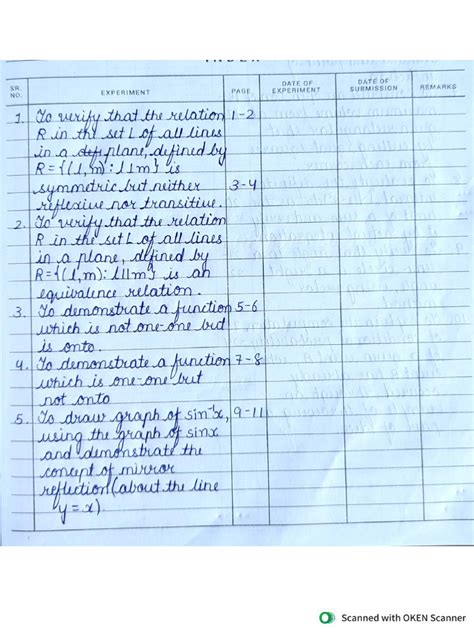 INDEX
SR. NO. EXPERIMENT PAGE DATE OF EXPERIMENT DATE OF SUBMISSION REMARKS
1. To verify that the relation 1-2
R in the set L of all lines
in a plane, defined by
R = {(l, m) : l ⊥ m} is
symmetric but neither 3-4
reflexive nor transitive.
2. To verify that the relation
R in the set L of all lines
in a plane, defined by
R = {(l, m) : l || m} is an
equivalence relation.
3. To demonstrate a function 5-6
which is not one-one but
is onto.
4. To demonstrate a function 7-8
which is one-one but
not onto
5. To draw graph of sin⁻¹x, 9-11
using the graph of sinx
and demonstrate the
concept of mirror
reflection (about the line
y = x)
Scanned with OKEN Scanner